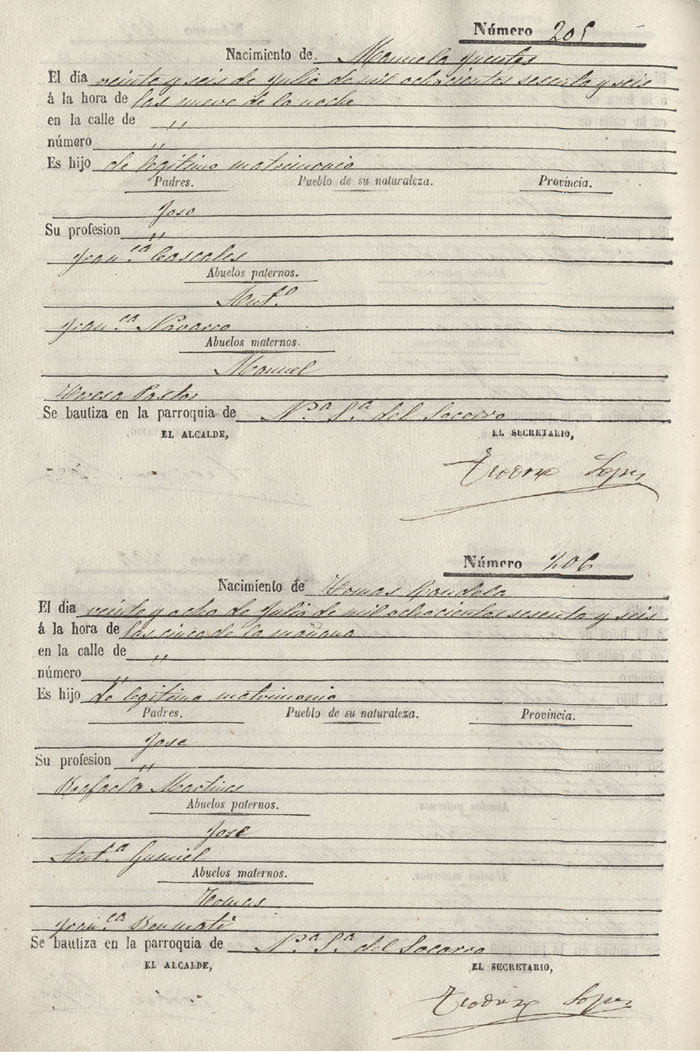 Número 205
Nacimiento de Manuela Fuentes
El dia veinte y seis de Julio de mil ochocientos sesenta y seis
á la hora de las nueve de la noche
en la calle de "
número "
Es hijo de legitimo matrimonio
Padres. Pueblo de su naturaleza. Provincia.
Jose
Su profesion "
Fran.ca Cascales
Abuelos paternos.
Ant.o
Fran.ca Navarro
Abuelos maternos.
Manuel
Teresa Pastor
Se bautiza en la parroquia de N.a S.a del Socorro
EL ALCALDE, EL SECRETARIO,
Teodoro Lopez
Número 206
Nacimiento de Tomas Candela
El dia veinte y ocho de Julio de mil ochocientos sesenta y seis
á la hora de las cinco de la mañana
en la calle de "
número "
Es hijo de legitimo matrimonio
Padres. Pueblo de su naturaleza. Provincia.
Jose
Su profesion "
Rafaela Martinez
Abuelos paternos.
Jose
Ant.a Gumiel
Abuelos maternos.
Tomas
Fran.ca Bernmati
Se bautiza en la parroquia de N.a S.a del Socorro
EL ALCALDE, EL SECRETARIO,
Teodoro Lopez